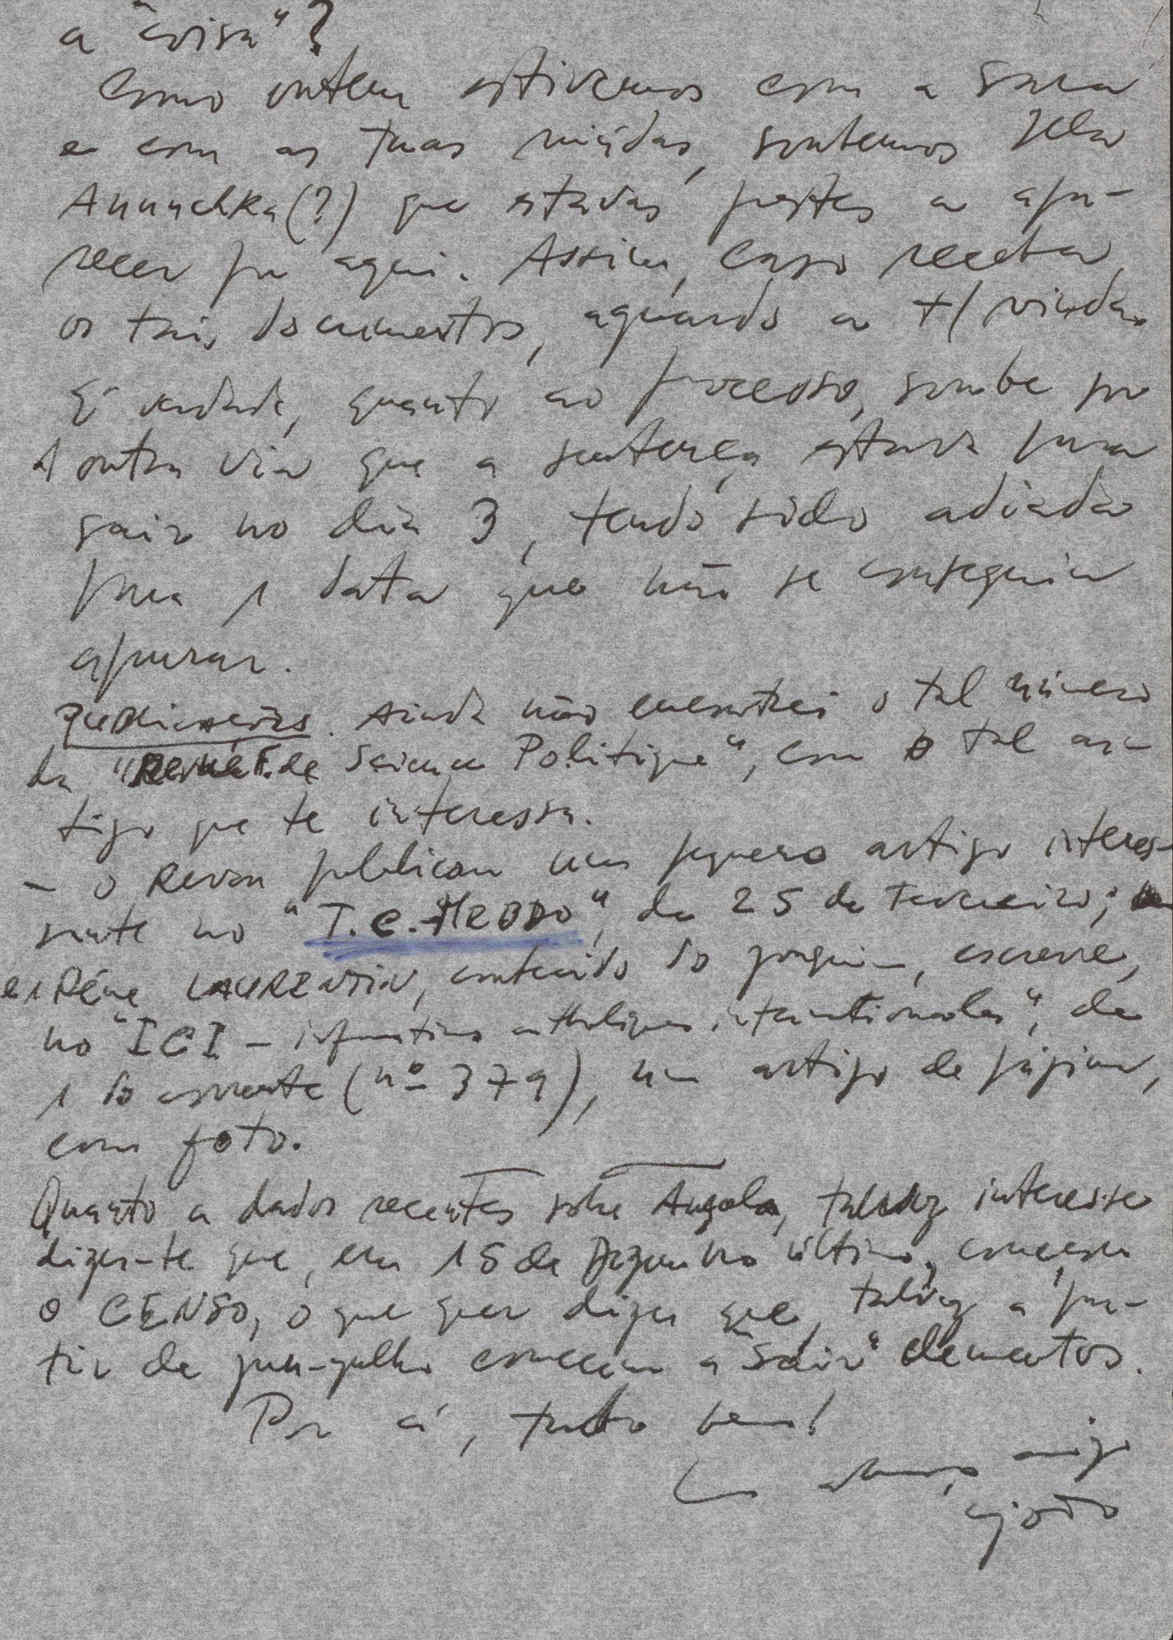 a "coisa"?
Como ontem estivemos com a Sara
e com as tuas miúdas, soubemos pela
Anuschka(?) que estavas prestes a apa-
recer por aqui. Assim, caso receba
os tais documentos, aguardo a t/ vinda.
É verdade, quanto ao processo, soube por
1 outra via que a sentença estava para
sair no dia 3, tendo sido adiada
para 1 data que não se conseguiu
apurar.
Publicações. Ainda não encontrei o tal número
da "Revue F. de Science Politique", com o tal ar-
tigo que te interessa.
- O Revon publicou um pequeno artigo interes-
sante no "T.C.-HEBDO", de 25 de Fevereiro;
e René LAURENTIN, escreve,
no "ICI - informations catholiques internationales", de
1 do corrente (nº 379), um artigo de página,
com foto.
Quanto a dados recentes sobre Angola, talvez interesse
dizer-te que, em 15 de Dezembro último, começou
o CENSO, o que quer dizer que, talvez a par-
tir de jun-julho comecem a "sair" elementos.
Por cá, tudo bem!
Um abraço, amigo